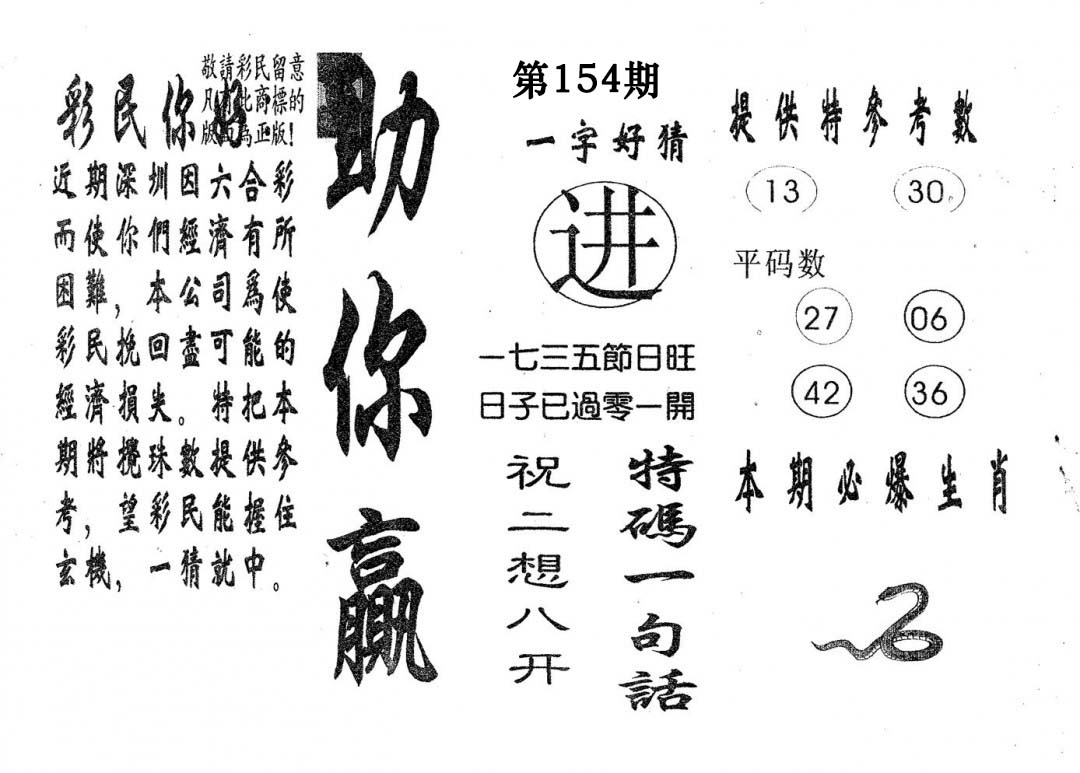 敬請彩民留意
凡有此商標的
版面為正版！
彩民你好
近期深圳因六合彩
而使你們經濟有所
困難，本公司爲使
彩民挽回盡可能的
經濟損失。特把本
期將攪珠數提供參
考，望彩民能握住
玄機，一猜就中。
助你贏
第154期
一字好猜
进
一七三五節日旺
日子已過零一開
特碼一句話
祝二想八开
提供特參考數
13 30
平码数
27 06
42 36
本期必爆生肖